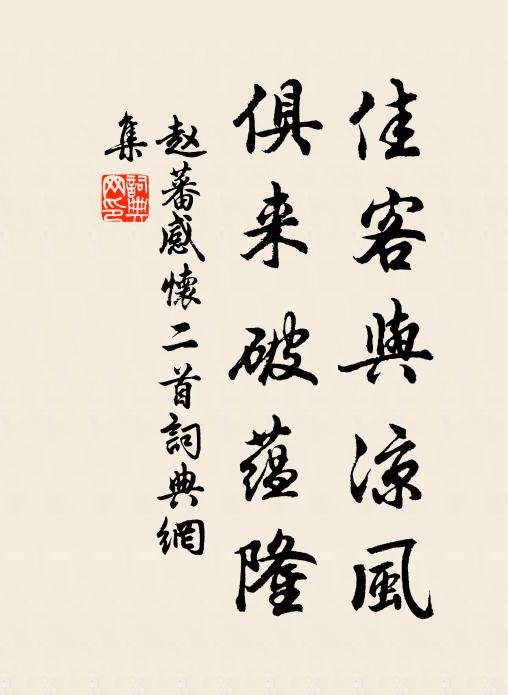 佳客與凉風
俱来破蕴隆
赵蕃感懷二首詞典網
集
詞典
网印